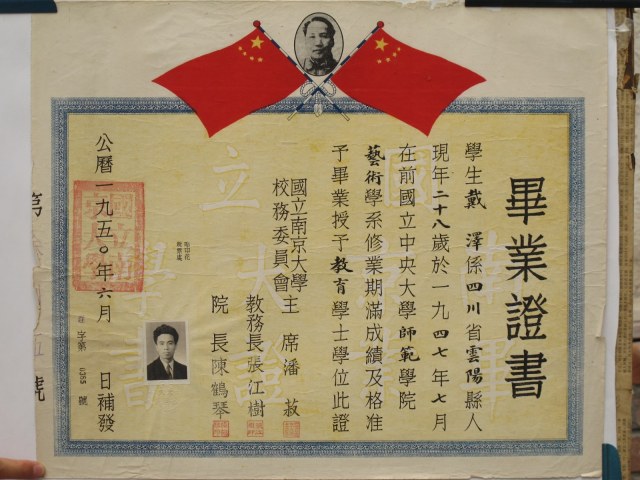 畢業證書
學生戴澤係四川省雲陽縣人
現年二十八歲於一九四七年七月
在前國立中央大學師範學院
藝術學系修業期滿成績及格准
予畢業授予教育學士學位此證
國立南京大學
校務委員會
主席潘菽
教務長張江樹
院長陳鶴琴
公曆一九五〇年六月 日補發
字第 號
第 號